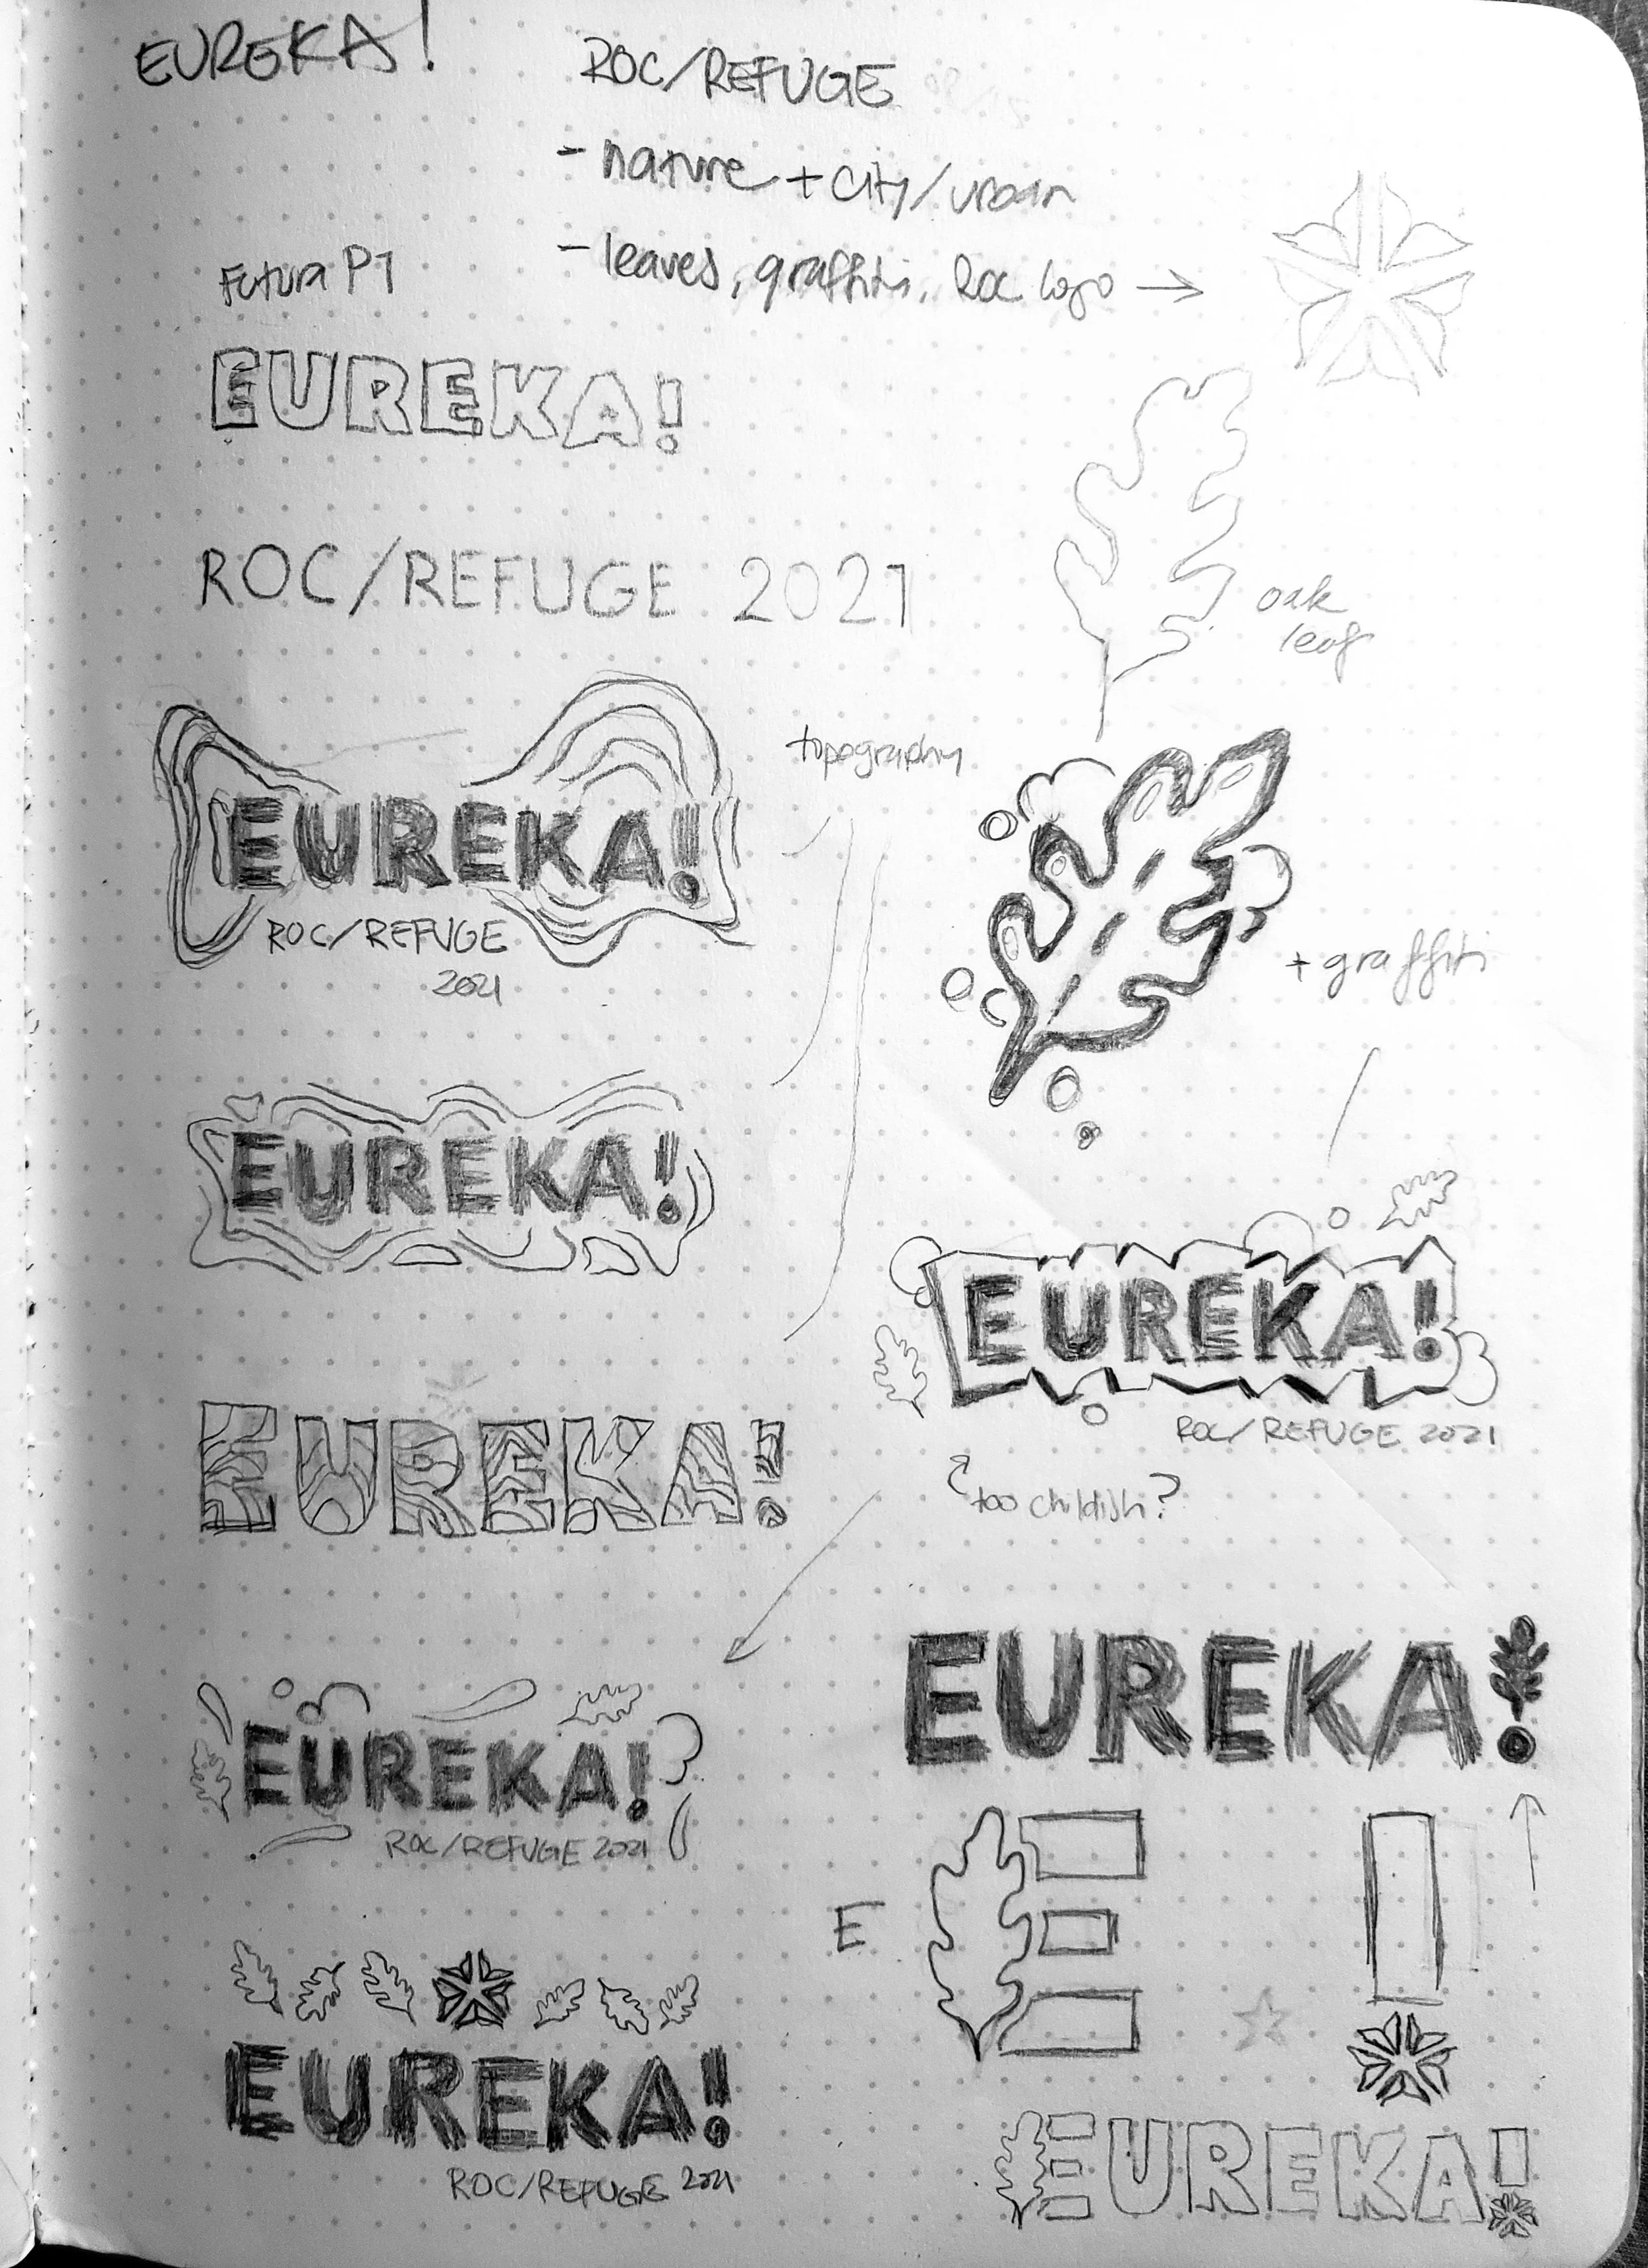 EUREKA!
ROC/REFUGE
- nature + city/urban
- leaves, graffiti, Roc logo →
Futura PT
EUREKA!
ROC/REFUGE 2021
oak
leaf
topography
EUREKA!
ROC/REFUGE
2021
+ graffiti
EUREKA!
EUREKA!
ROC/REFUGE 2021
too childish?
EUREKA!
EUREKA!
EUREKA!
ROC/REFUGE 2021
E
EUREKA!
ROC/REFUGE 2021
EUREKA!